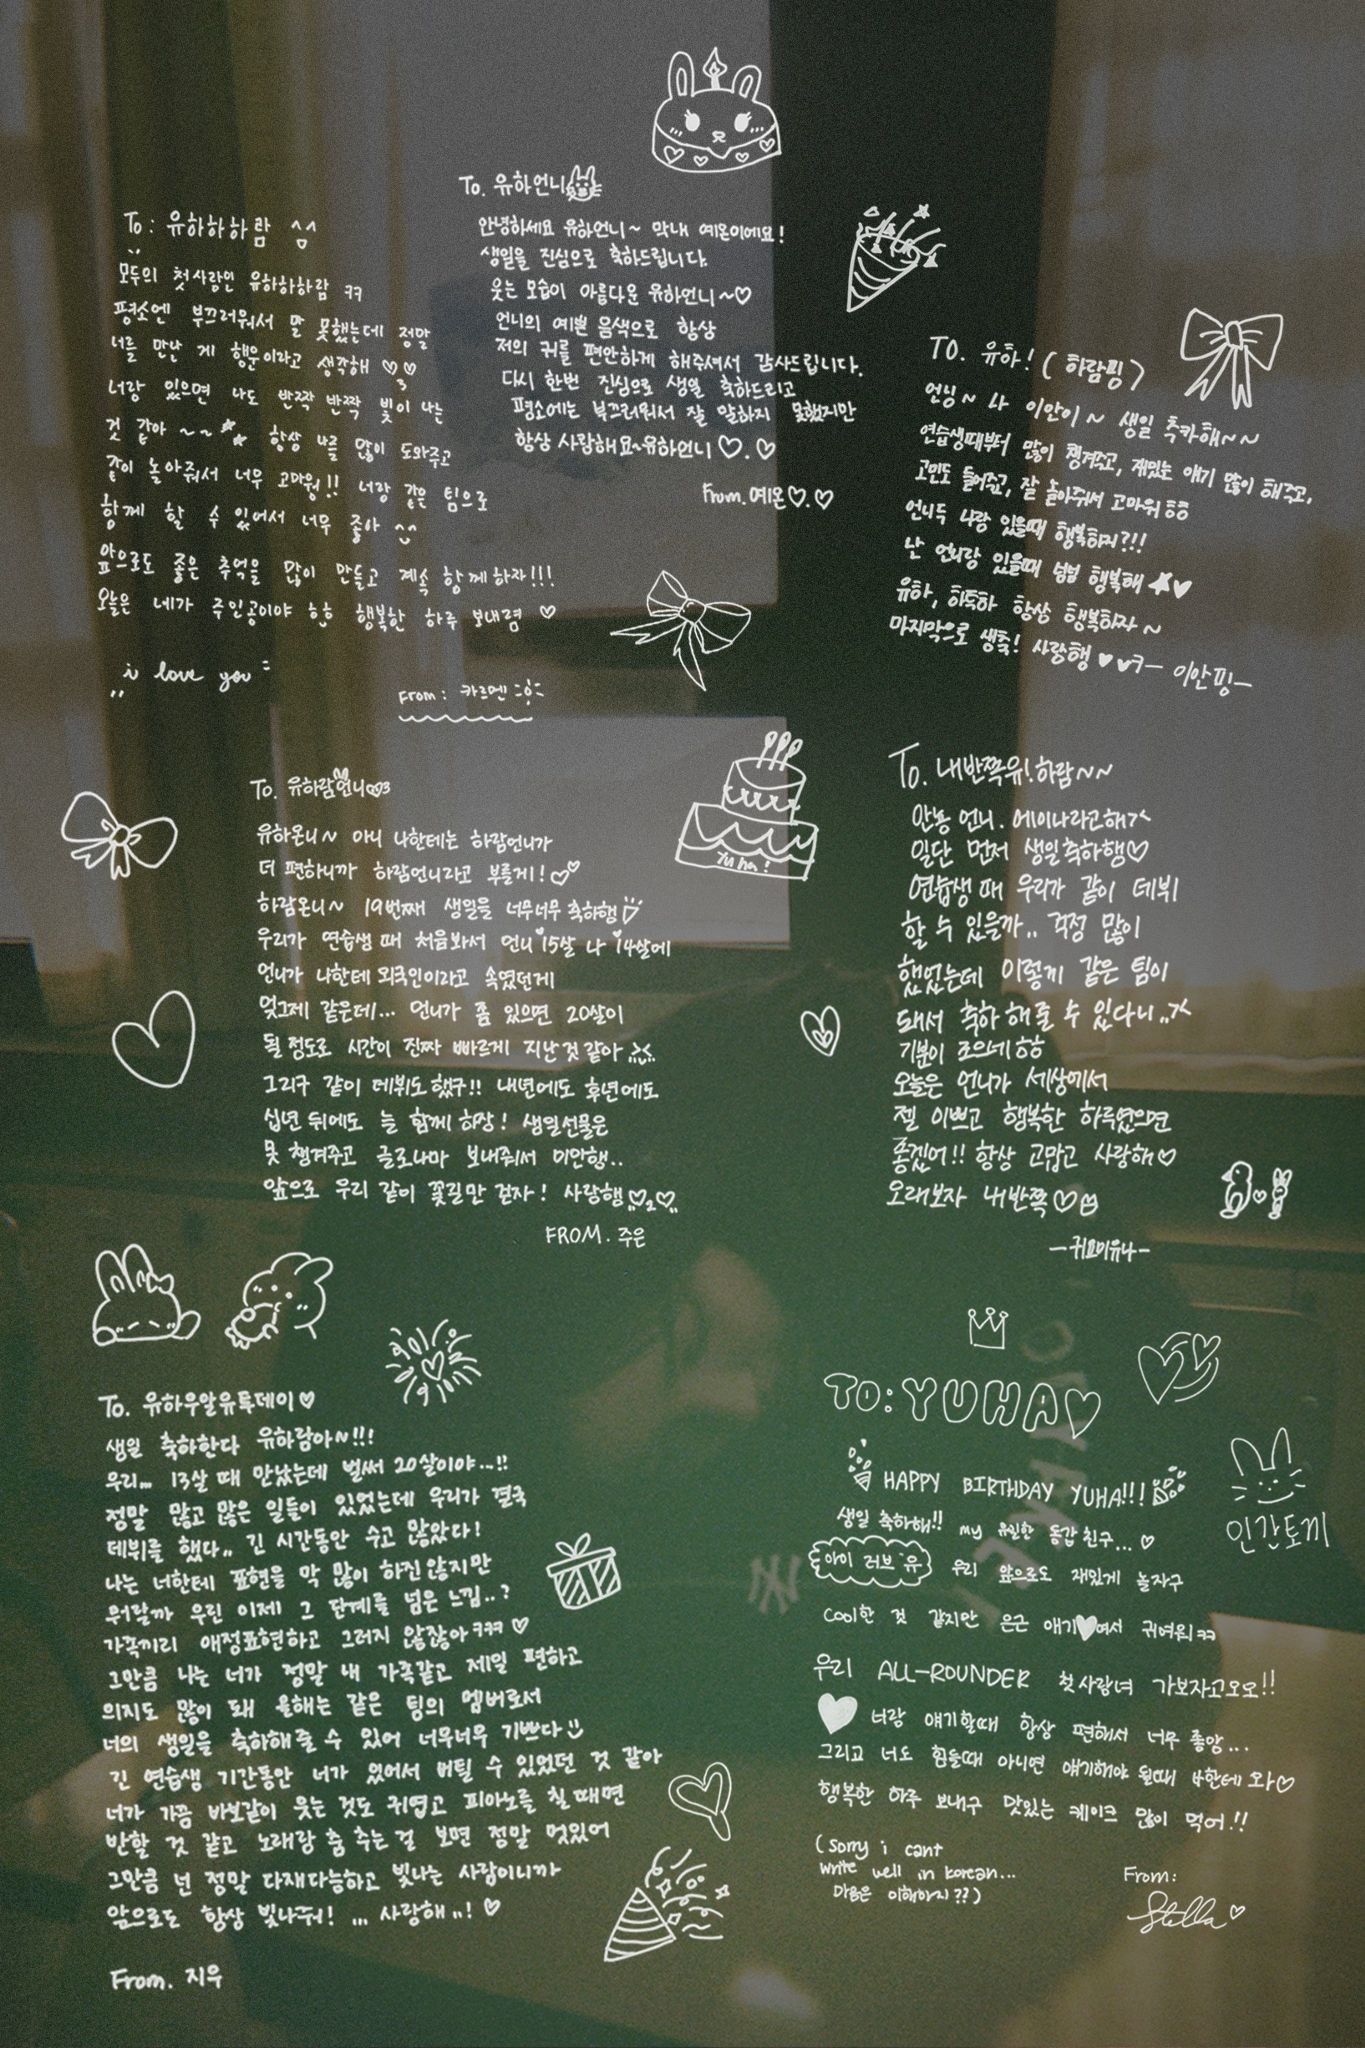 To. 유하언니
안녕하세요 유하언니~ 막내 예온이에요!
생일을 진심으로 축하드립니다.
웃는 모습이 아름다운 유하언니~♡
언니의 예쁜 음색으로 항상
저의 귀를 편안하게 해주셔서 감사드립니다.
다시 한번 진심으로 생일 축하드리고
평소에는 부끄러워서 잘 말하지 못했지만
항상 사랑해요~유하언니♡.♡
From.예온♡.♡
To: 유하하하람 ^^
모두의 첫사랑인 유하하하람 ㅋㅋ
평소엔 부끄러워서 말 못했는데 정말
너를 만난 게 행운이라고 생각해 ♡♡
너랑 있으면 나도 반짝 반짝 빛이 나는
것 같아 ~~ 항상 나를 많이 도와주고
같이 놀아줘서 너무 고마웡!! 너랑 같은 팀으로
함께 할 수 있어서 너무 좋아 ^^
앞으로도 좋은 추억을 많이 만들고 계속 함께하자!!!
오늘은 네가 주인공이야 행복한 하루 보내렴 ♡
i love you
From: 카르멘
TO. 유하! (하람핑)
언닝~ 나 이안이~ 생일 축카해~~
연습생때부터 많이 챙겨주고, 재밌는 얘기 많이 해주고,
고민도 들어주고, 잘 놀아줘서 고마워ㅎㅎ
언니두 나랑 있을때 행복하지?!!
난 언니랑 있을때 넘넘 행복해 ★♥
유하, 하루하루 항상 행복하자~
마지막으로 생축! 사랑행 ♥
- 이안핑-
To. 유하람언니♡3
유하온니~ 아니 나한테는 하람언니가
더 편하니까 하람언니라고 부를게!♡♡
하람온니~ 19번째 생일을 너무너무 축하행
우리가 연습생 때 처음봐서 언니 15살 나 14살에
언니가 나한테 외국인이라고 속였던게
엊그제 같은데... 언니가 좀 있으면 20살이
될 정도로 시간이 진짜 빠르게 지난것 같아
그리구 같이 데뷔도 했구!! 내년에도 후년에도
십년 뒤에도 늘 함께 하장! 생일선물은
못 챙겨주고 글로나마 보내줘서 미안행..
앞으로 우리 같이 꽃길만 걷자! 사랑행♡2♡
FROM. 주은
Yuha!
To. 내반쪽유!하람~~
안뇽 언니. 에이나라고해ㅋ
일단 먼저 생일축하행♡
연습생 때 우리가 같이 데뷔
할 수 있을까.. 걱정 많이
했었는데 이렇게 같은 팀이
돼서 축하해줄 수 있다니..
기분이 조으네ㅎㅎ
오늘은 언니가 세상에서
젤 이쁘고 행복한 하루였으면
좋겠어!! 항상 고맙고 사랑해♡
오래보자 내반쪽♡
-귀요미유나-
To. 유하우알유투데이♡
생일 축하한다 유하람아~!!!
우리... 13살 때 만났는데 벌써 20살이야...!!
정말 많고 많은 일들이 있었는데 우리가 결국
데뷔를 했다.. 긴 시간동안 수고 많았다!
나는 너한테 표현을 막 많이 하진않지만
뭐랄까 우린 이제 그 단계를 넘은 느낌..?
가족끼리 애정표현하고 그러지 않잖아ㅋㅋㅋ♡
그만큼 나는 너가 정말 내 가족같고 제일 편하고
의지도 많이 돼 올해는 같은 팀의 멤버로서
너의 생일을 축하해줄 수 있어 너무너무 기쁘다
긴 연습생 기간동안 너가 있어서 버틸 수 있었던 것 같아
너가 가끔 바보같이 웃는 것도 귀엽고 피아노를 칠 때면
반할 것 같고 노래랑 춤 추는 걸 보면 정말 멋있어
그만큼 넌 정말 다재다능하고 빛나는 사람이니까
앞으로도 항상 빛나줘! ... 사랑해..! ♡
From. 지우
TO: YUHA♡
HAPPY BIRTHDAY YUHA!!!
생일 축하해!! my 유일한 동갑친구... ♡
아이 러브 유 우리 앞으로도 재밌게 놀자구
cool한 것 같지만 은근 애기♥여서 귀여워ㅋㅋ
우리 ALL-ROUNDER 첫사랑녀 가보자고오오!!
♥ 너랑 얘기할때 항상 편해서 너무 좋앙...
그리고 너도 힘들때 아니면 얘기해야 될때 나한테 와♡
행복한 하루 보내구 맛있는 케이크 많이 먹어!!
(sorry i cant
write well in korean...
마음은 이해하지??)
From:
Stella♡
인간토끼